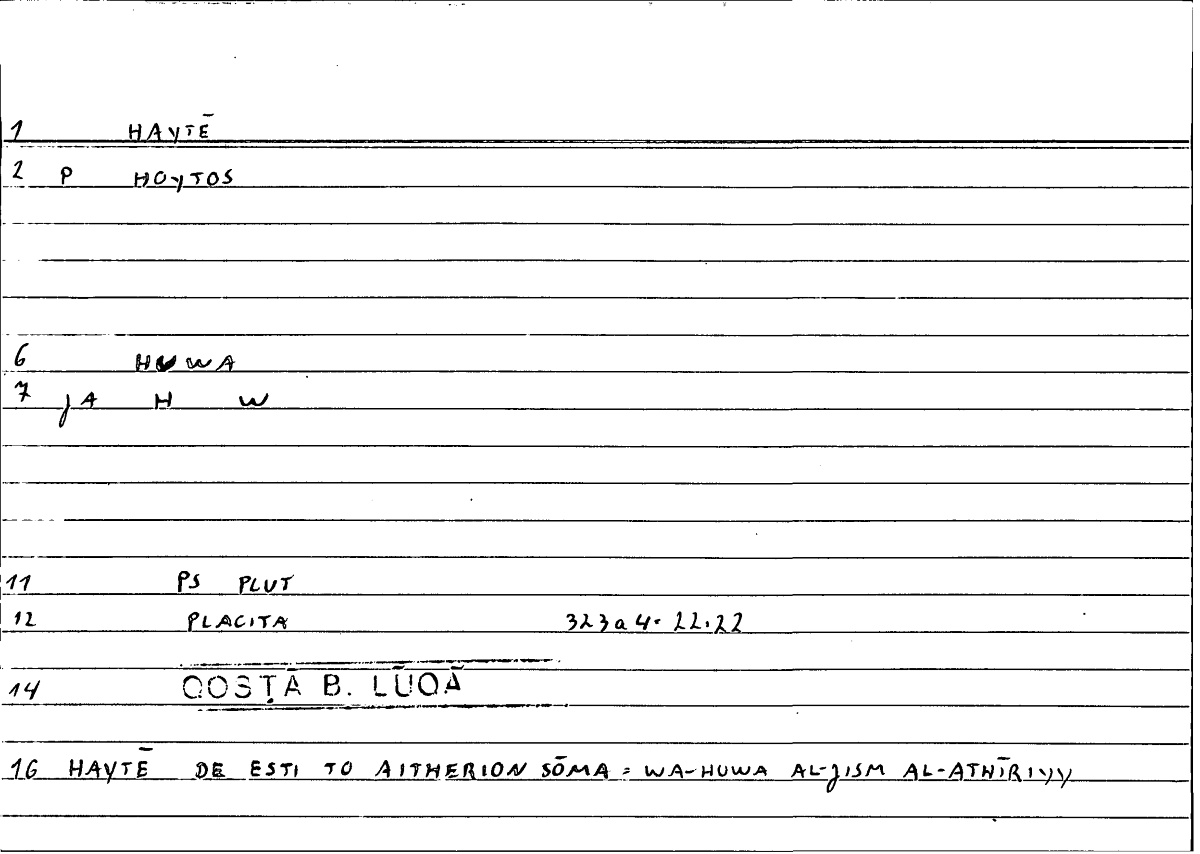 1 HAYTĒ
2 P HOYTOS
6 HUWA
7 JA H W
11 PS PLUT
12 PLACITA 323a4. 22.22
14 QOSṬĀ B. LŪQĀ
16 HAYTĒ DE ESTI TO AITHERION SŌMA = WA-HUWA AL-JISM AL-ATHĪRIYY